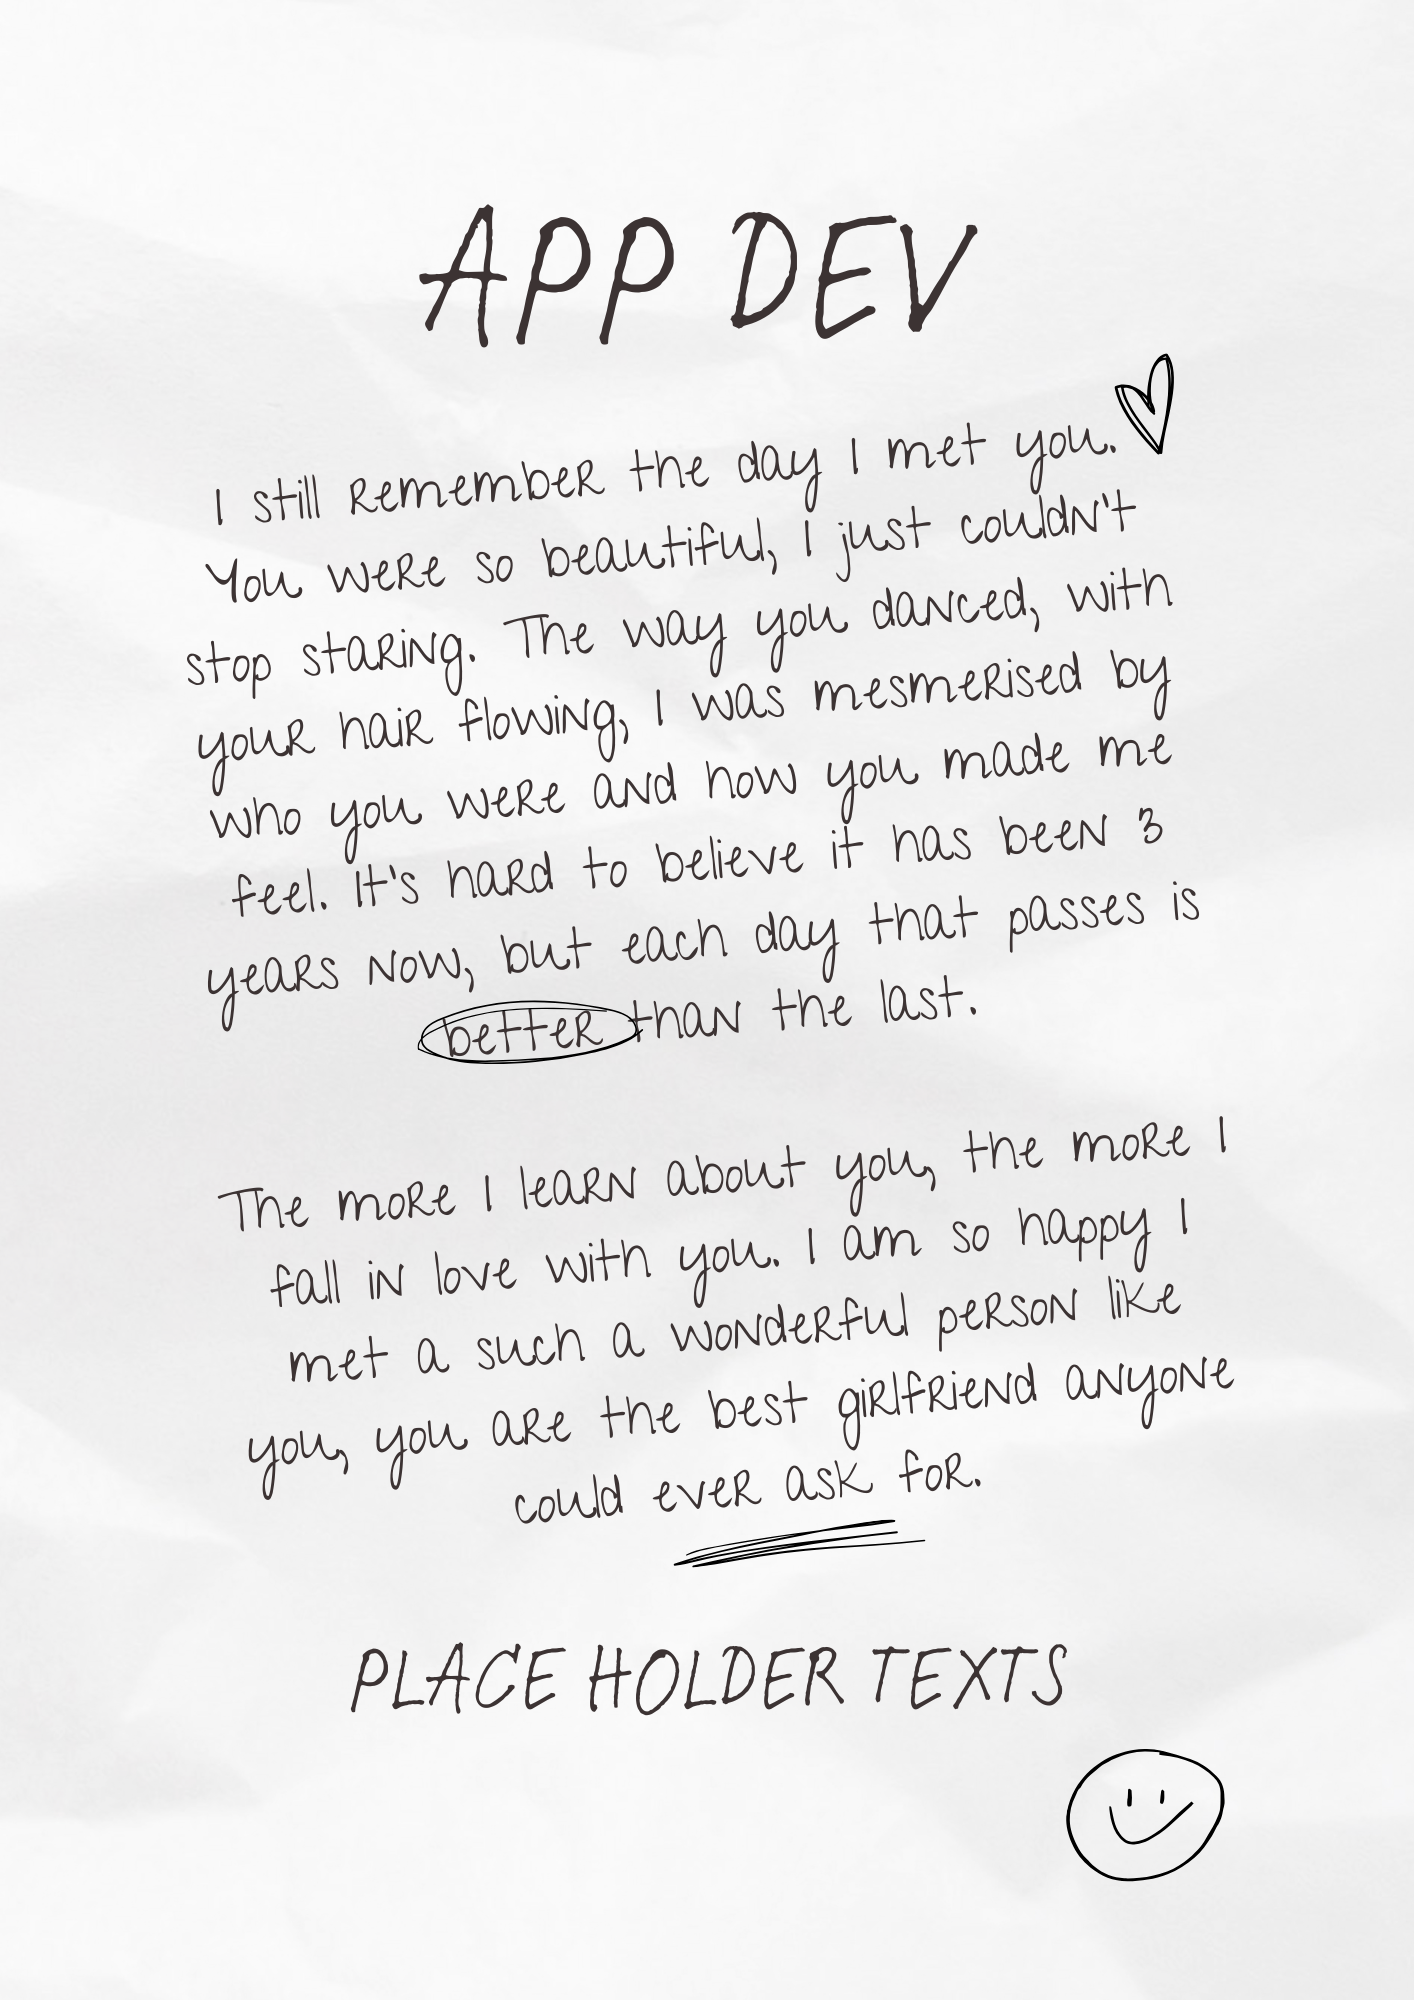 APP DEV
I still remember the day I met you.
You were so beautiful, I just couldn't
stop staring. The way you danced, with
your hair flowing, I was mesmerised by
who you were and how you made me
feel. It's hard to believe it has been 3
years now, but each day that passes is
better than the last.
The more I learn about you, the more I
fall in love with you. I am so happy I
met a such a wonderful person like
you, you are the best girlfriend anyone
could ever ask for.
PLACE HOLDER TEXTS